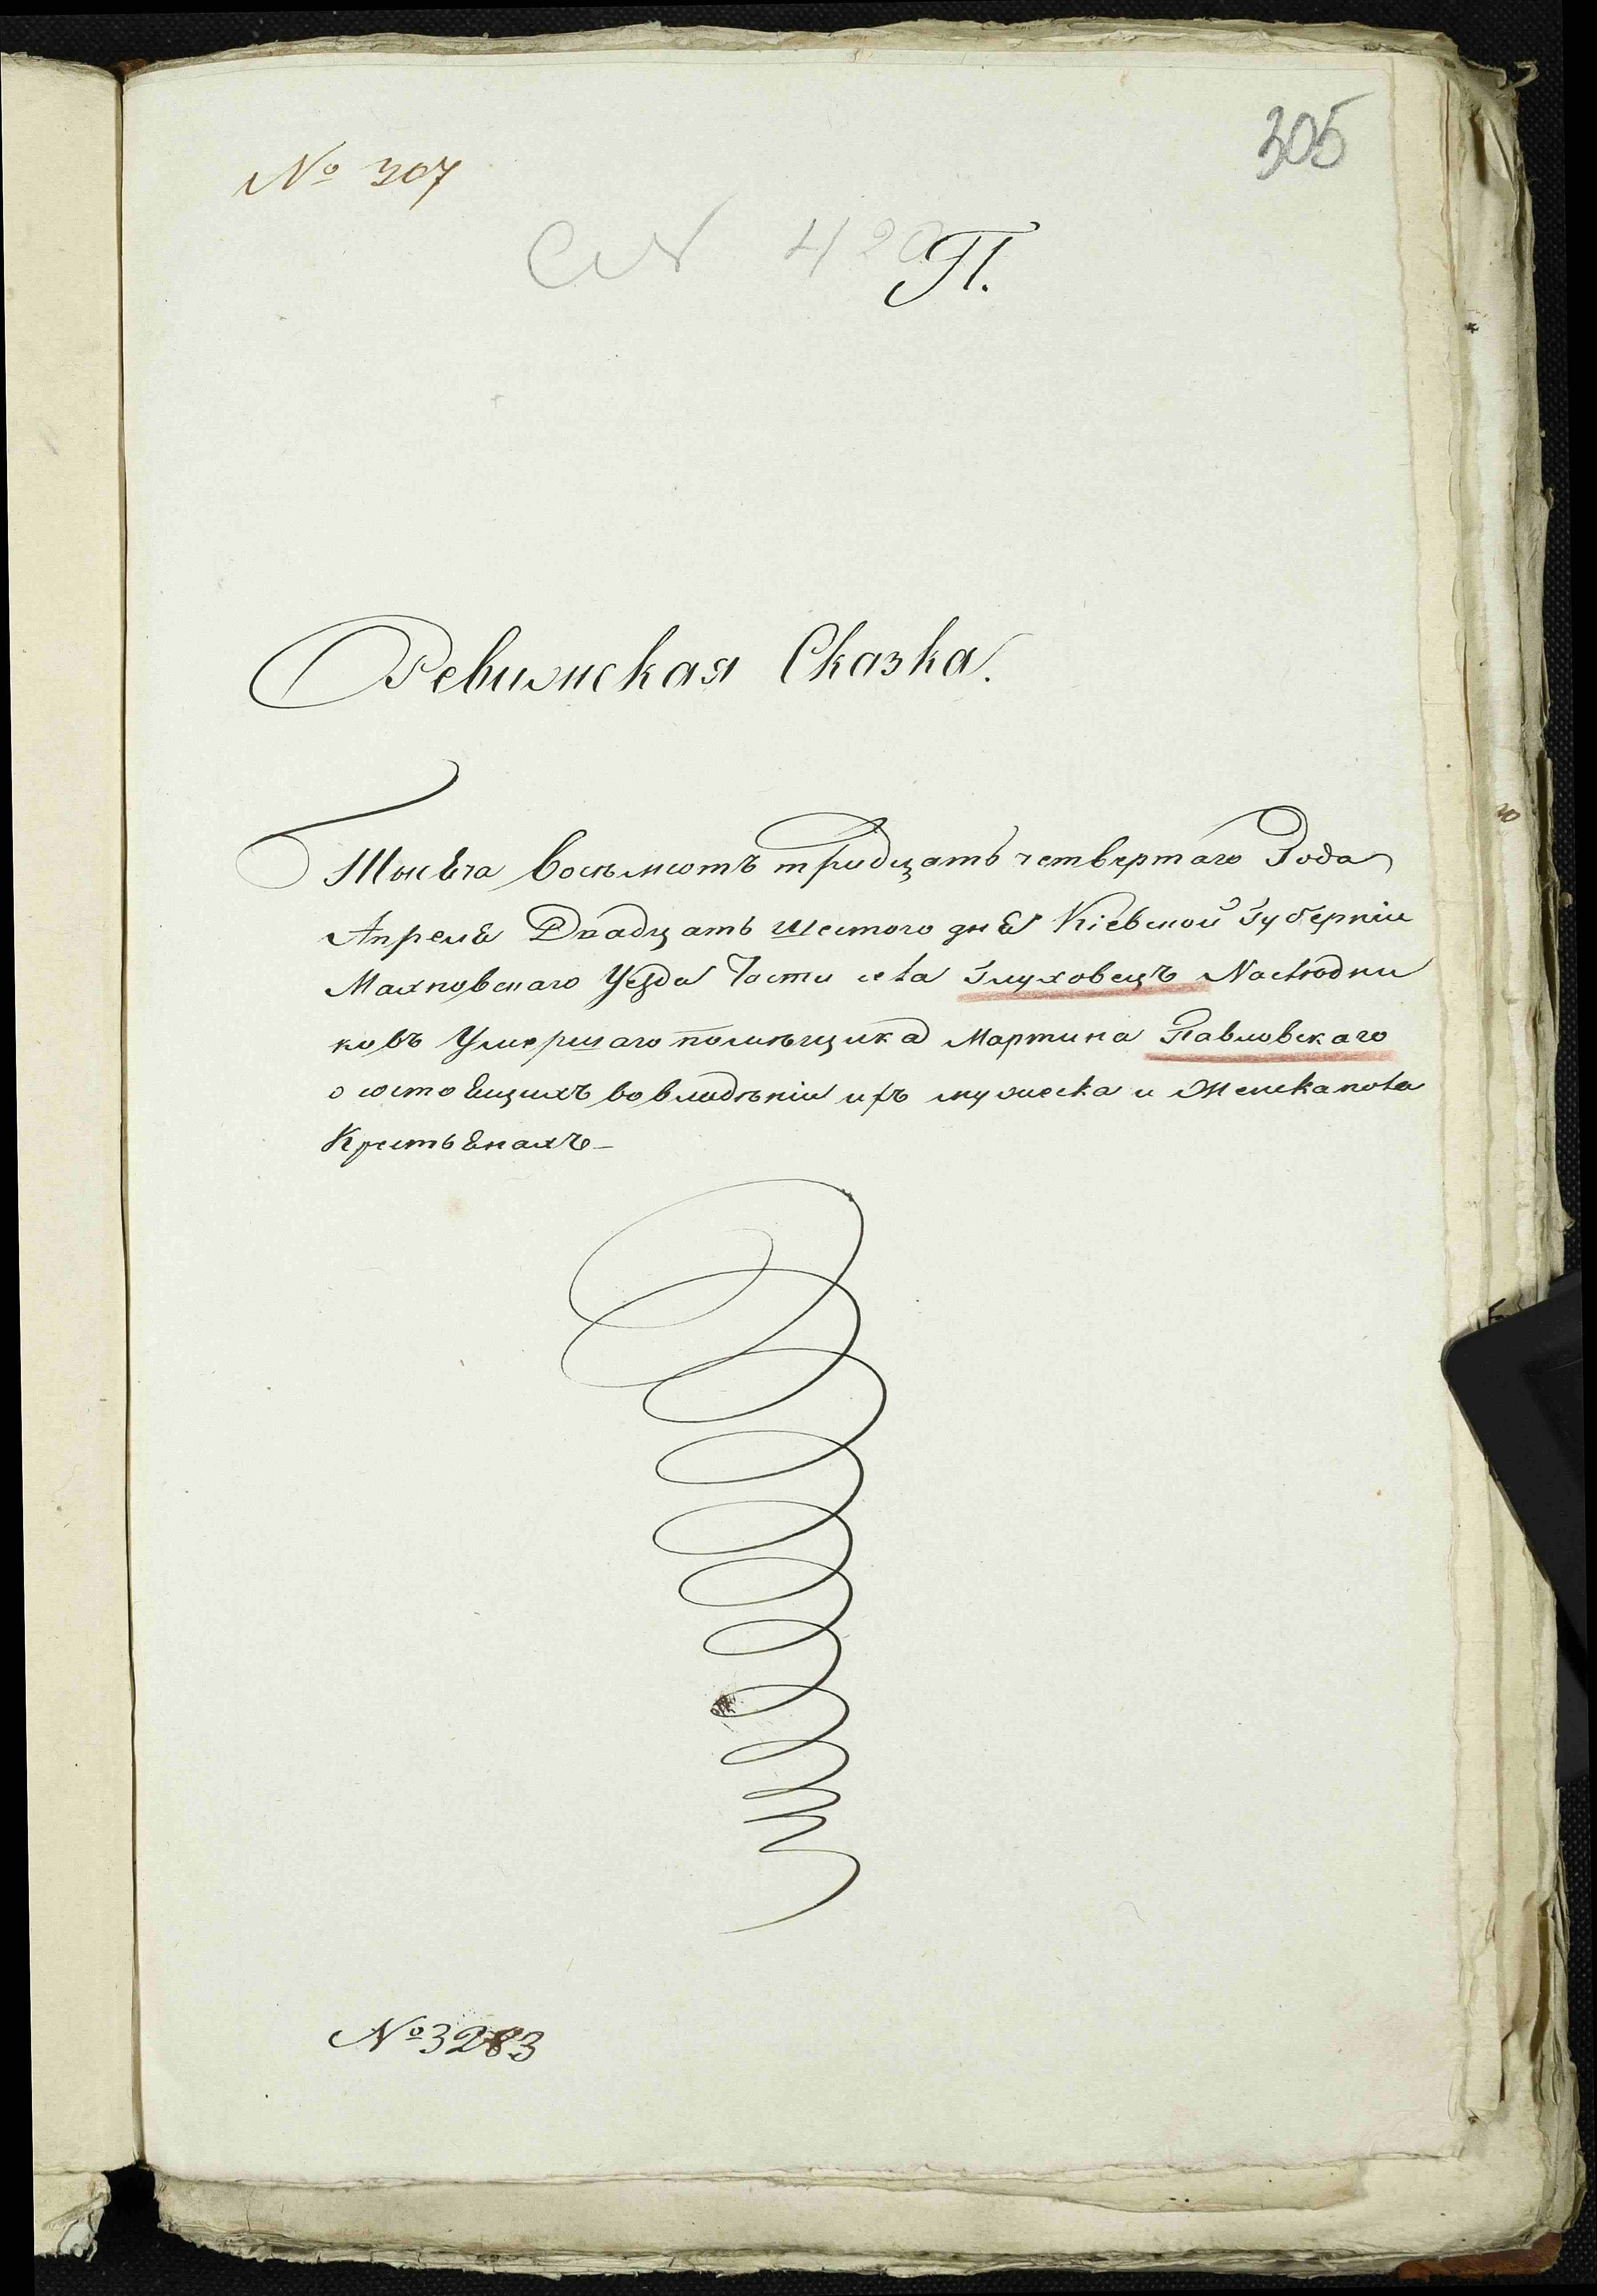 305
№ 307
№ 420
П.
Ревижская Сказка.
Тысяча восемьсотъ тридцать четвертаго Года
Апреля Двадцать шестого дня Кіевской Губерніи
Махновскаго Уезда Части села Глуховецъ Наслюдни
ковъ Умершаго помѣщика Мартина Павловскаго
о состоящихъ во владѣніи ихъ мужеска и Женска пола
Крестьянахъ
№ 3283